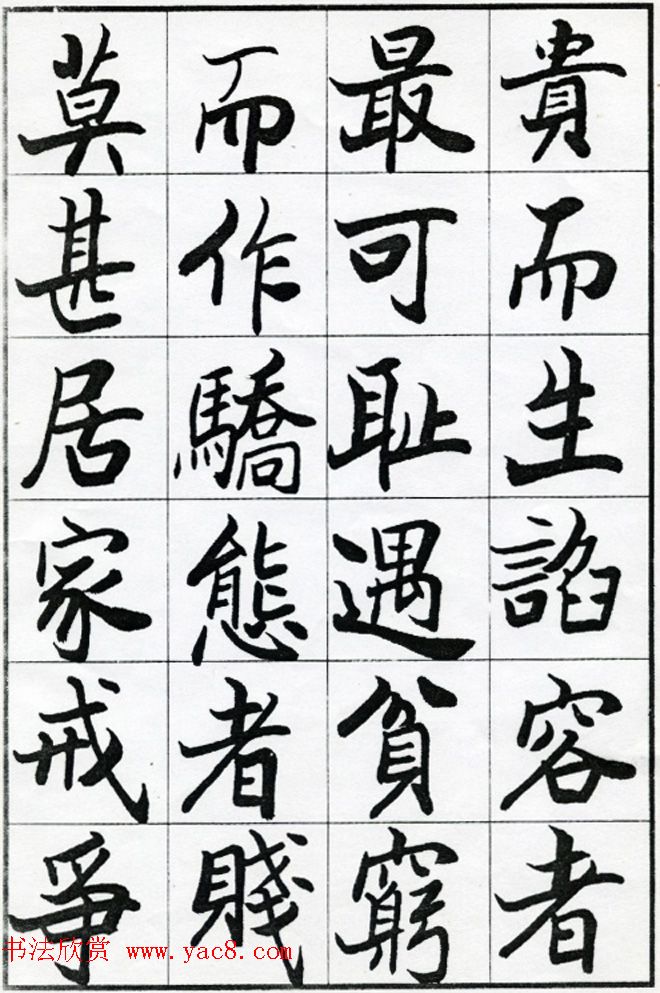 貴而生諂容者
最可耻遇貧窮
而作驕態者賤
莫甚居家戒爭
书法欣赏 www.yac8.com